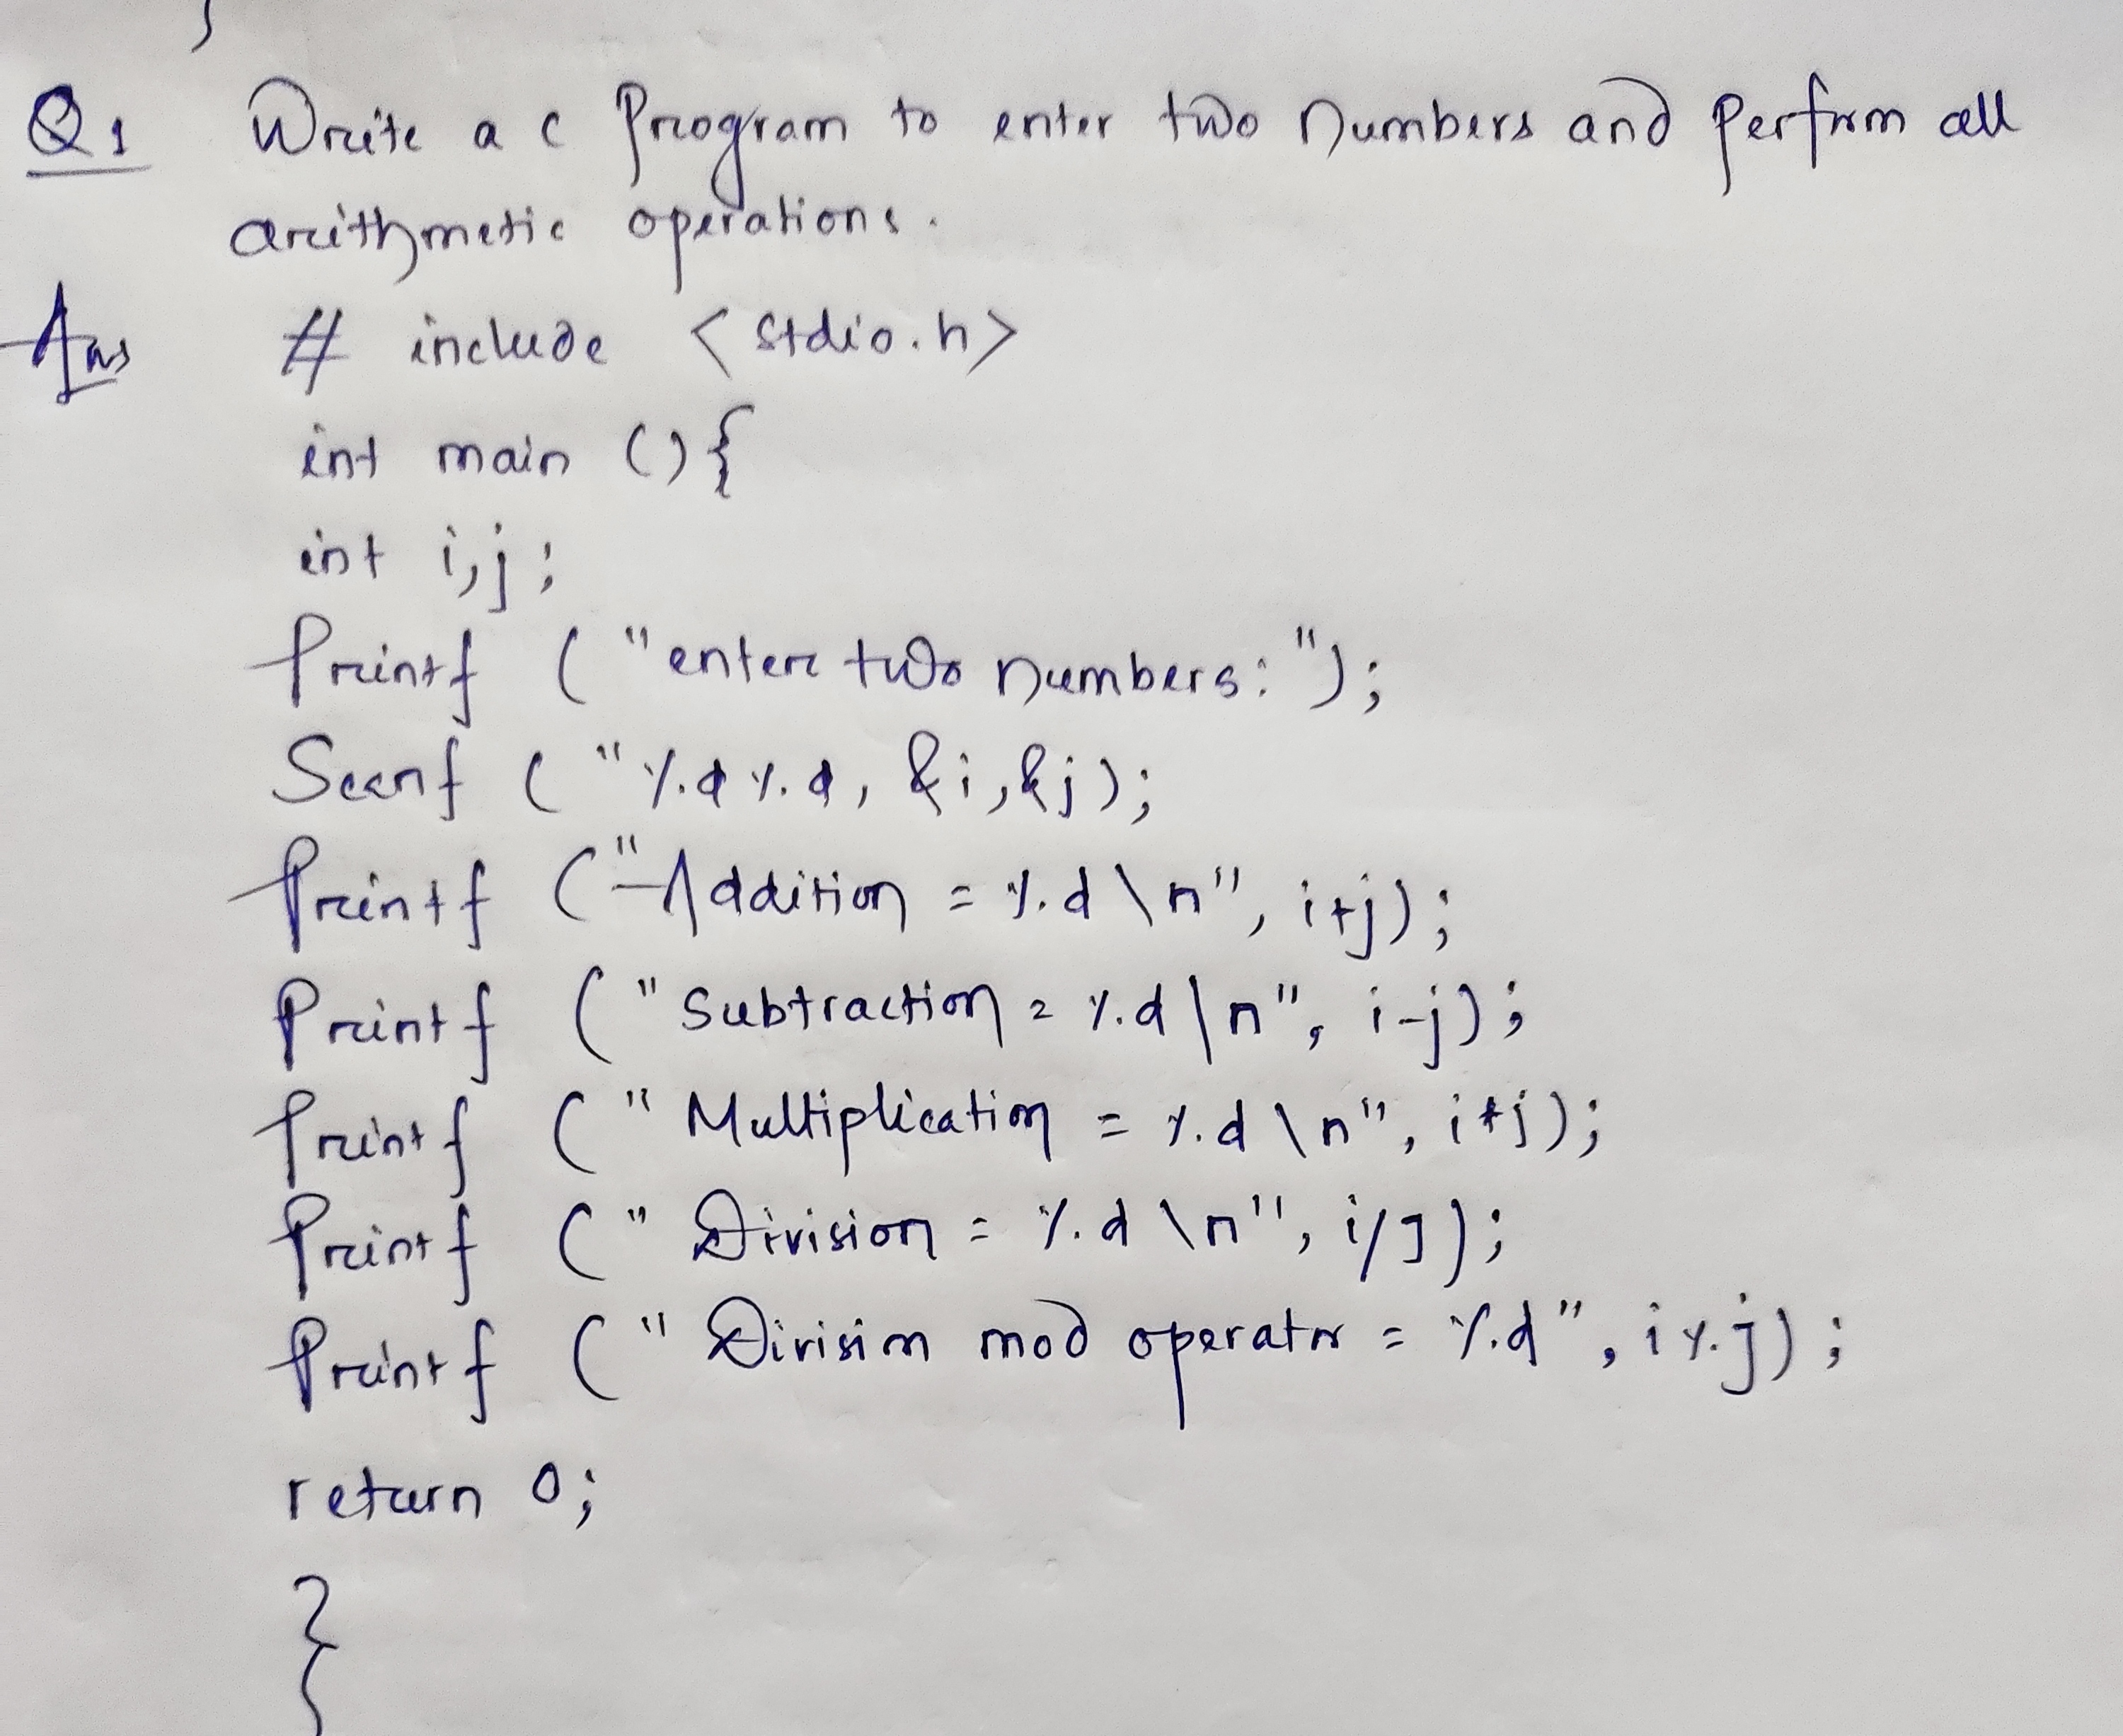 }
Q1 Write a c Program to enter two numbers and perform all
arithmetic operations.
Ans # include <stdio.h>
int main (){
int i,j;
Printf ("enter two numbers:");
Scanf ("%d%d, &i,&j);
Printf ("Addition = %d\n", i+j);
Printf ("Subtraction = %d\n", i-j);
Printf ("Multiplication = %d\n", i*j);
Printf ("Division = %d\n", i/j);
Printf ("Division mod operator = %d", i%j);
return 0;
}